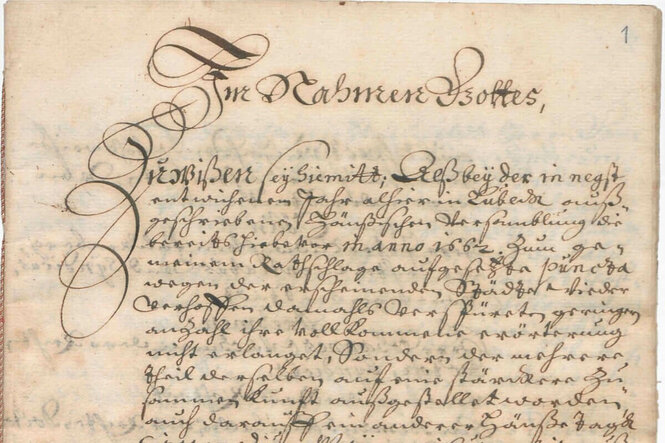 1
Im Nahmen Gottes,
Zuwißen sey hiemitt, Alß bey der in negst
entwichenem Jahr alhier in Lübeck auß„
geschriebenen Hänßischen Versamblung die
bereits hiebevor in anno 1662. Zum ge„
meinem Rathschlage aufgesetzte puncta
wegen der erscheinenden Städte wieder
verhoffen damahls verspüreten geringen
anzahl ihre vollkommene erörterung
nicht erlanget, Sondern der mehrere
theil derselben auf eine stärckere Zu„
sammenkunfft außgestellet worden,
auch darauff ein anderer Hänße tag